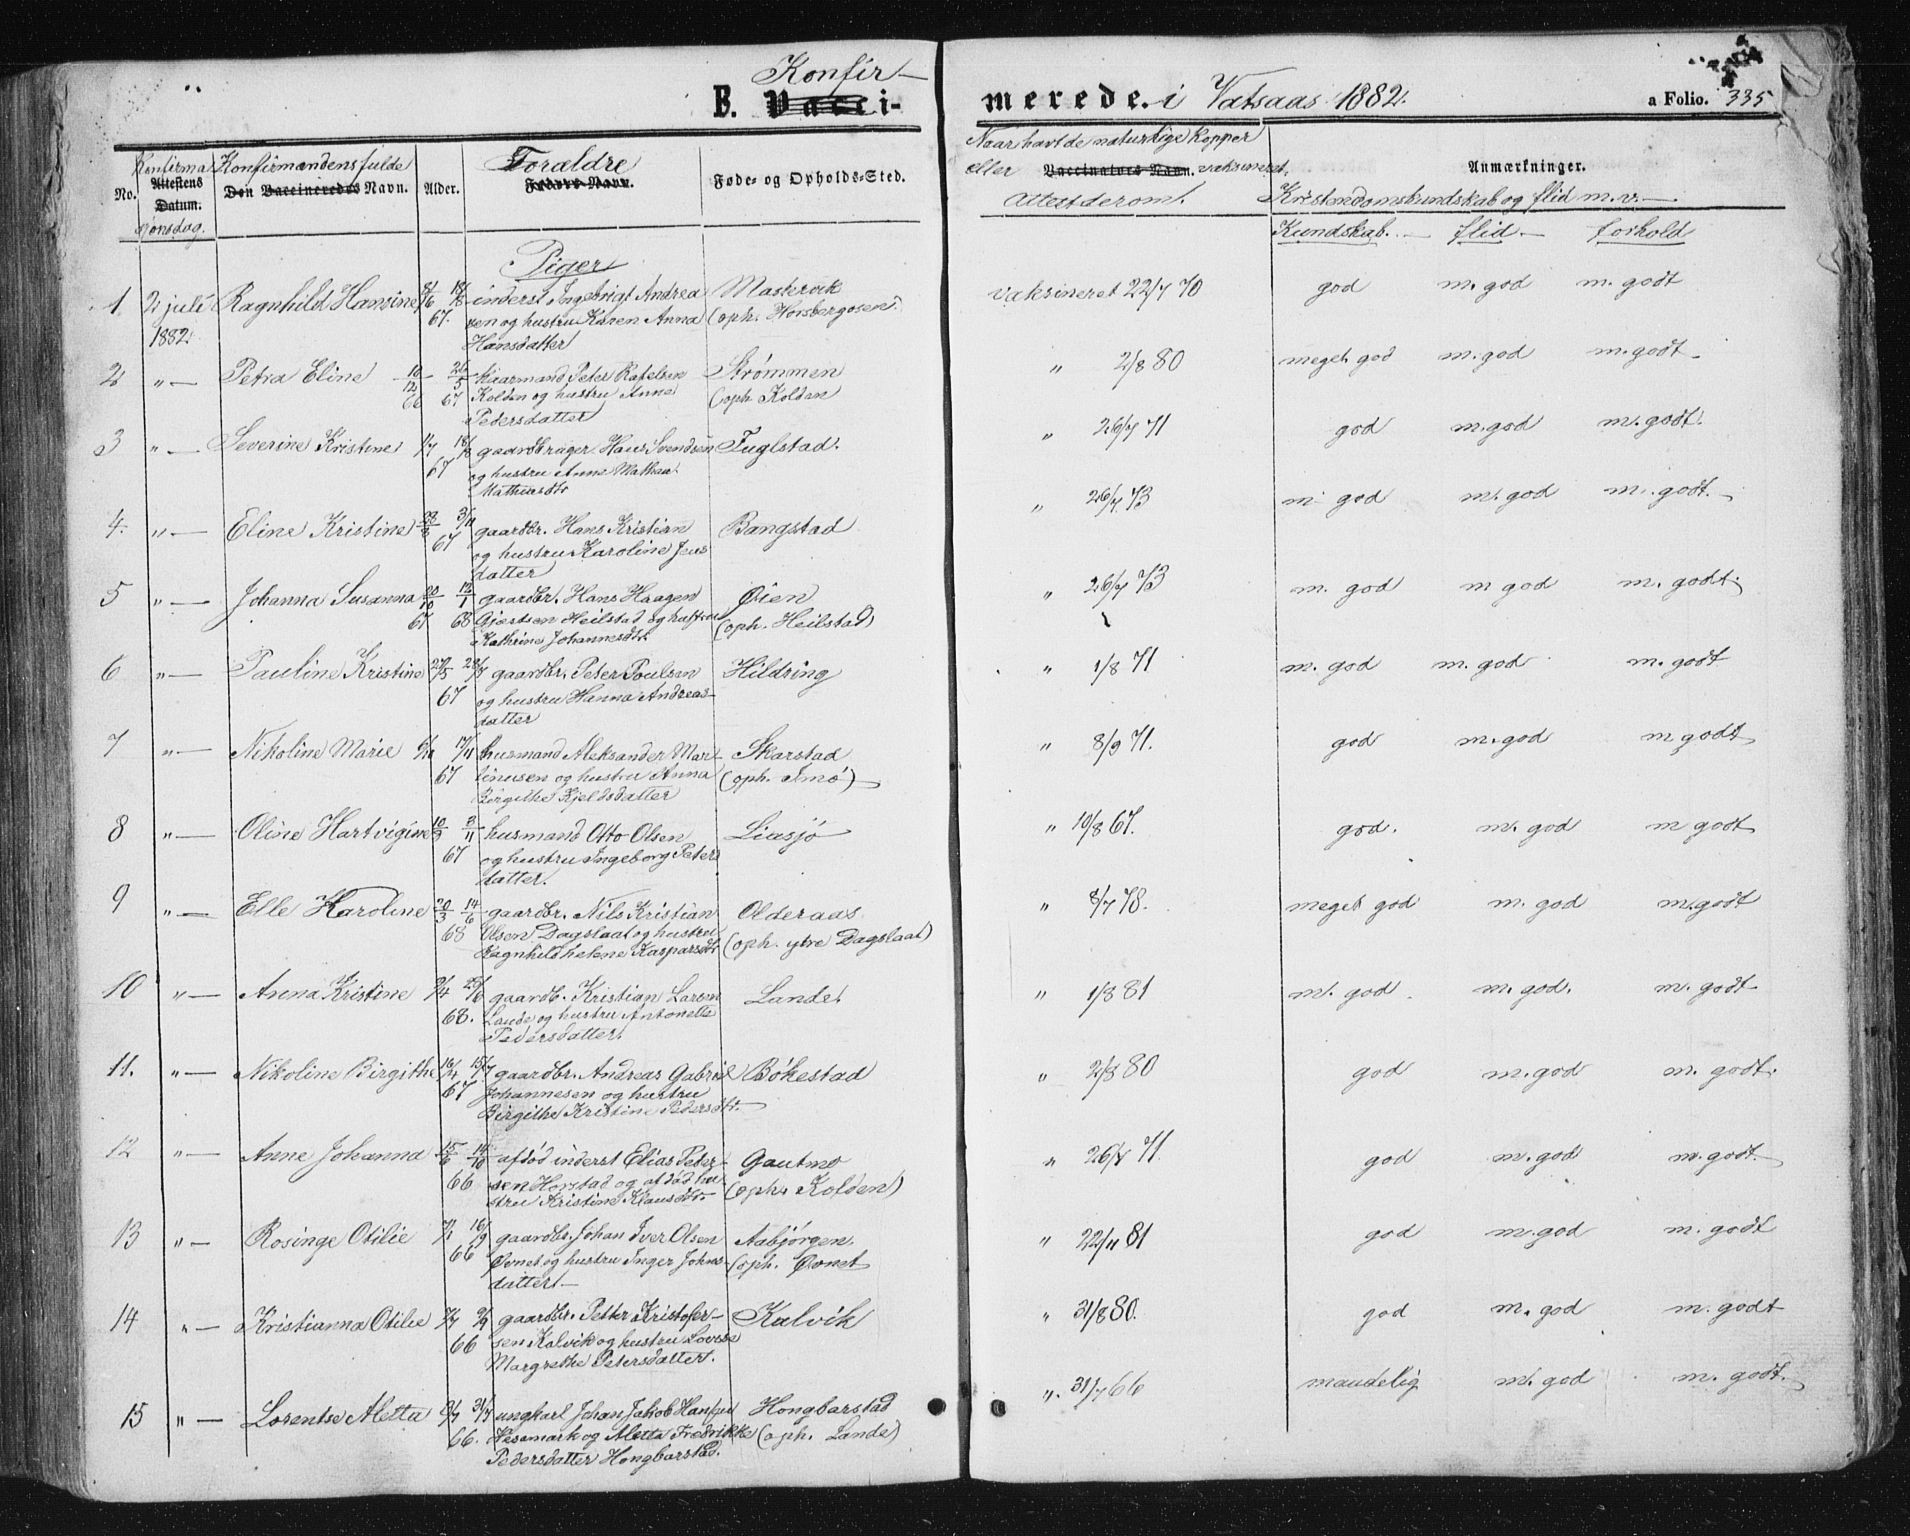 Konfir-
E. Vacci- merede. i Vatsaas 1882. a Folio. 335
No. Konfirma Attestens Datum. sjonsdag.
Konfirmandens fulde Den Vaccineredes Navn.
Alder.
Forældre
Føde- og Opholds-Sted.
Naar havt de naturlige kopper
eller Vaccinateurs Navn. vaksineret.
Attest derom.
Anmærkninger.
Kristendomskundskab og flid m. v.
Kundskab. flid forhold
Piger
1 2 juli 1882. Ragnhild Hansine 67. inderst Ingebrigt Andrea Maskervik vaksineret 22/7 70 god m. god m. godt
sen og hustru Karen Anna (oph. Horsbergosen)
Hansdatter
2 " — Petra Eline 10/12 66 26/5 67 kaarmand Peter Rafelsen Strømmen " 2/8 80 meget god m. god m. godt
Kolden og hustru Anne (oph Kolden
Pedersdatter
3 " — Severine Kristine 1/7 18/8 67 gaardbruger Hans Svendsen Fuglstad. " 26/7 71 god m. god m. godt.
og hustru Anne Mathea
4. " — Eline Kristine 3/11 67 gaardbr. Hans Kristian Bangstad " 26/7 73 m god m. god m. godt.
og hustru Karoline Jens
datter
5 " — Johanna Susanna 20/10 67 12/1 68 gaardbr. Hans Haagen Øien " 26/7 73 m. god m god m. godt.
Gjertsen Heilstad og hustru (oph. Heilstad)
Kathrine Johannesdtr.
6 " — Pauline Kristine 27/5 28/7 67 gaardbr. Peter Poulsen Hildring " 1/8 71 m. god m. god m. godt
og hustru Hanna Andreas-
datter
7 " — Nikoline Marie 17/11 67 husmand Aleksander Mar- Skarstad " 8/9 71. god m. god m godt
tinusen og hustru Anna (oph. Imø)
Birgithe Kjeldsdatter
8 " — Oline Hartvigine 10/3 3/11 67 husmand Otto Olsen Liasjø " 10/8 67. god. m. god m godt
og hustru Ingeborg Peters
datter.
9 " — Elle Karoline 20/3 14/6 68 gaardbr. Nils Kristian Olderaas " 8/7 78. meget god m. god m. godt
Olsen Dagslaat og hustru (oph. ytre Dagslaat)
Ragnhild helene Kaspersdtr
10 " — Anna Kristine 25/6 68. gaardb. Kristian Larsen Lande. " 1/8 81 m. god m. god. m. godt
Lande og hustru Antonette
Pedersdatter.
11. " — Nikoline Birgithe 16/4 15/7 67 gaardbr. Andreas Gabriel Bøkestad " 2/8 80 god m. god m. godt.
Johannesen og hustru
Birgithe Kristine Pedersdtr.
12 " — Anne Johanna 15/6 14/10 66 afdød inderst Elias Peter- Gautmo " 26/7 71. god m. god m. godt.
sen Horstad og afdød hu- (oph. Kolden)
stru Kristine Klausdtr.
13 " — Rosinge Otilie 16/9 66 gaardbr. Johan Iver Olsen Aabjørgen. " 22/11 81 god m. god m. godt
Øvnet og hustru Inger Johns- (oph. Øvnet
datter
14 " — Kristianna Otilie 66 gaardbr. Petter Kristofer- Kalvik " 31/8 80. god m. god m. godt
sen Kalvik og hustru Lovise
Margrethe Petersdatter.
15 " — Lorentse Aletta 31/7 66. ungkarl Johan Jakob Hansen Hongbarstad " 31/7 66 maadelig m. god m. godt.
Nesamark og Aletta Fredrikke (oph. Lande)
Pedersdatter Hongbarstad.